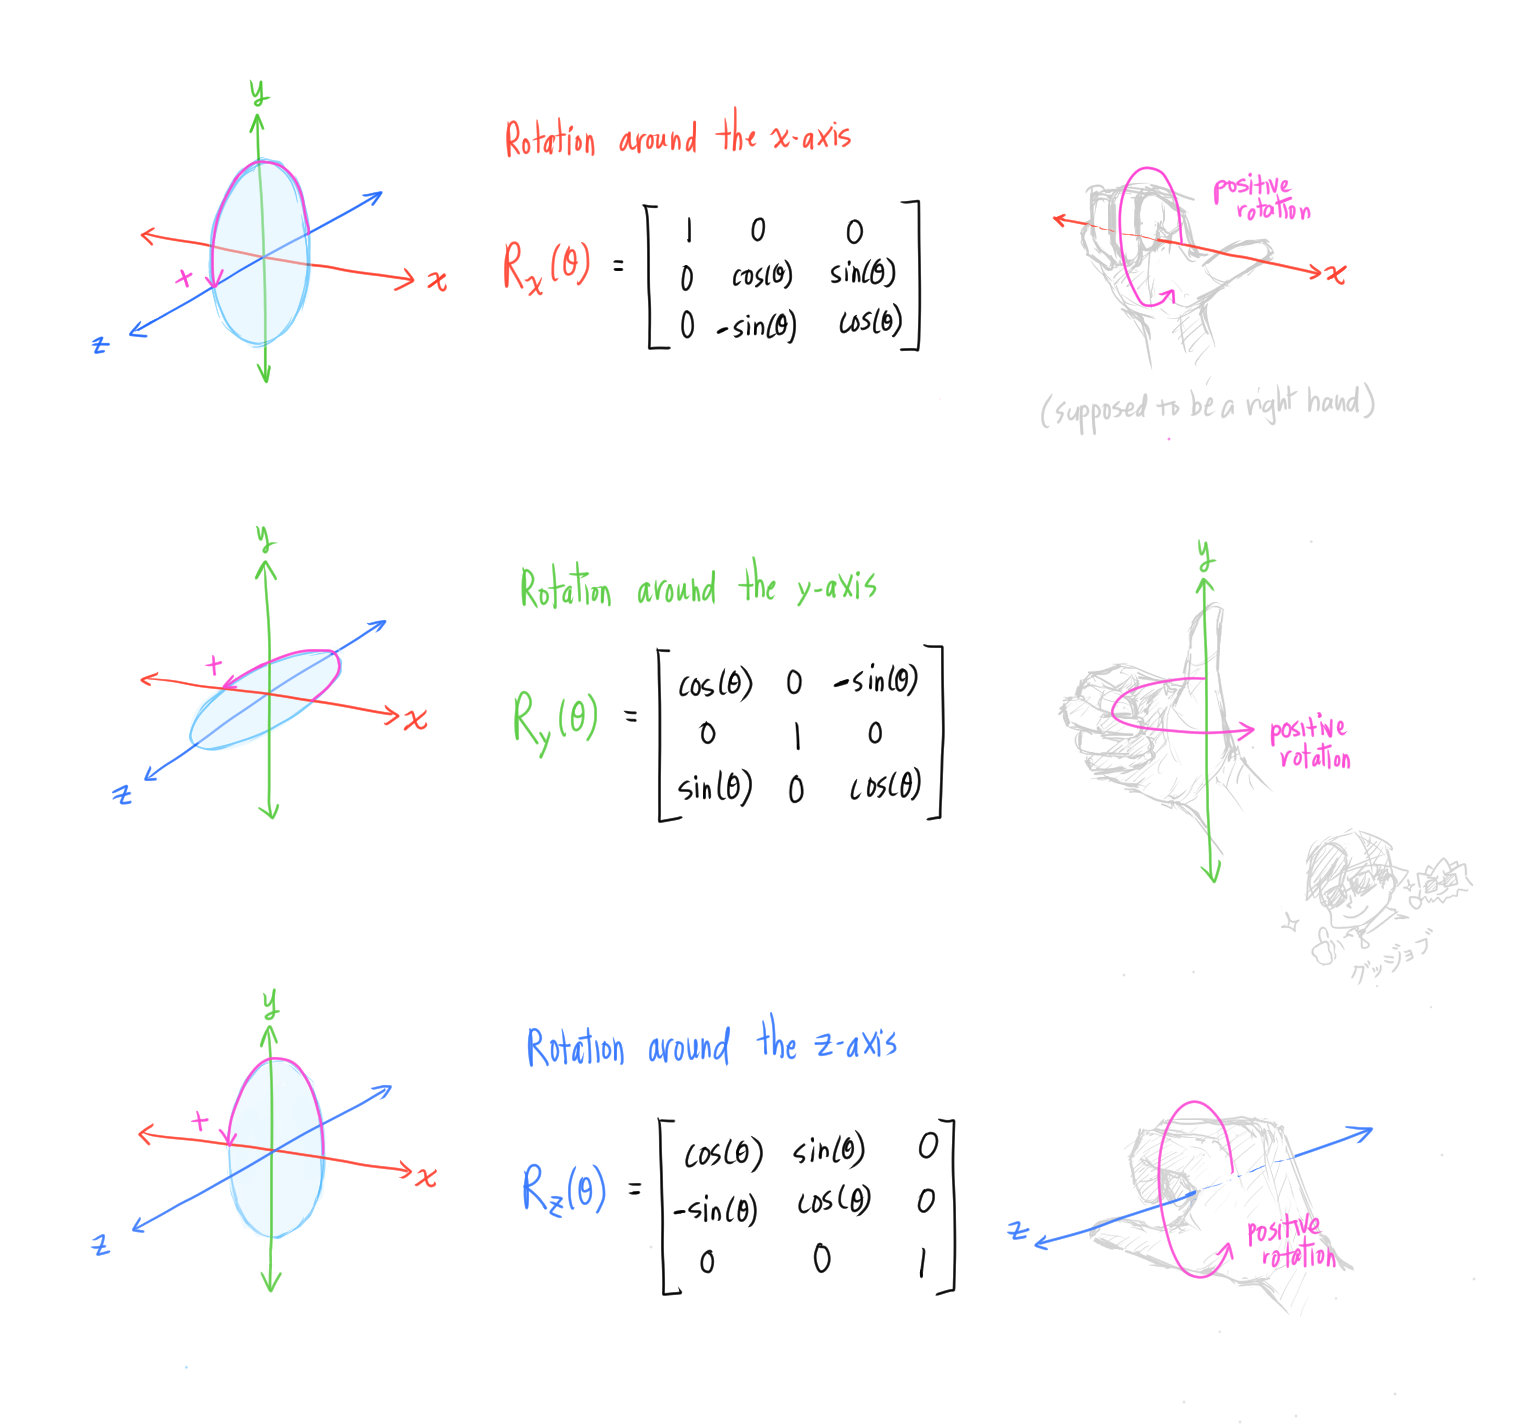 y
x
z
+
Rotation around the x-axis
Rx(θ) =
1 0 0
0 cos(θ) sin(θ)
0 -sin(θ) cos(θ)
positive
rotation
x
(supposed to be a right hand)
y
x
z
+
Rotation around the y-axis
Ry(θ) =
cos(θ) 0 -sin(θ)
0 1 0
sin(θ) 0 cos(θ)
y
positive
rotation
グッジョブ
y
x
z
+
Rotation around the z-axis
Rz(θ) =
cos(θ) sin(θ) 0
-sin(θ) cos(θ) 0
0 0 1
z
positive
rotation